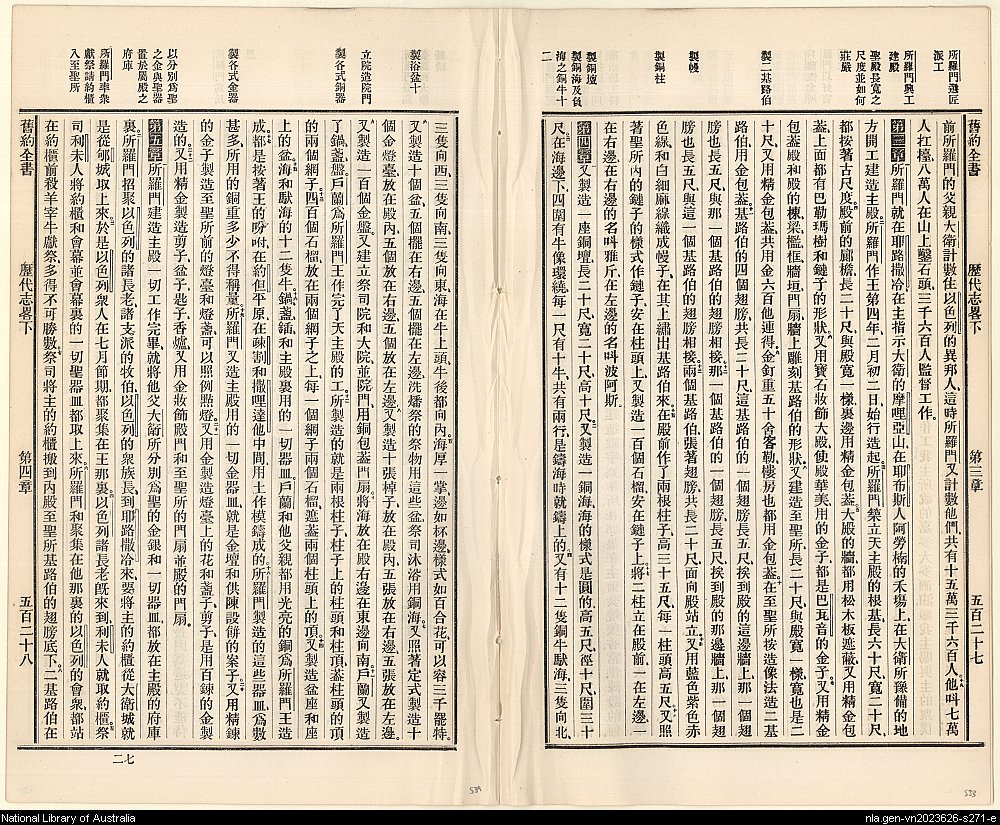 所羅門選匠
派工
所羅門興工
建殿
聖殿長寬之
尺度並如何
莊嚴
製二基路伯
製幔
製銅柱
製銅壇
製銅海及負
海之銅牛十
二
舊約全書
歷代志畧下
第三章
五百二十七
前所羅門的父親大衛計數住以色列的異邦人、這時所羅門又計數他們、共有十五萬三千六百人、他叫七萬
人扛擡、八萬人在山上鑿石頭、三千六百人監督工作。
第三章所羅門就在耶路撒冷在主指示大衛的摩哩亞山、在耶布斯人阿勞楠的禾塲上、在大衛所豫備的地
方、開工建造主殿、所羅門作王第四年、二月初二日始行造起、所羅門築立天主殿的根基、長六十尺、寬二十尺、
都按著古尺度、殿前的廊檐、長二十尺、與殿寬一樣、裏邊用精金包葢、大殿的牆、都用松木板遮蔽、又用精金包
葢、上面都有巴勒瑪樹和鏈子的形狀、又用寶石妝飾大殿、使殿華美、用的金子、都是巴耳音的金子、又用精金
包葢殿和殿的棟梁檻框牆垣門扇、牆上雕刻基路伯的形狀、又建造至聖所、長二十尺、與殿寬一樣、寬也是二
十尺、又用精金包葢、共用金六百他連得、金釘重五十舍客勒、樓房也都用金包葢、在至聖所按造像法造二基
路伯、用金包葢、基路伯的四個翅膀、共長二十尺、這基路伯的一個翅膀長五尺、挨到殿的這邊牆上、那一個翅
膀也長五尺、與那一個基路伯的翅膀相接、那一個基路伯的一個翅膀長五尺、挨到殿的那邊牆上、那一個翅
膀也長五尺、與這一個基路伯的翅膀相接、兩個基路伯張著翅膀、共長二十尺、面向殿站立、又用藍色紫色赤
色線和白細麻線織成幔子、在其上繡出基路伯來、在殿前作了兩根柱子、高三十五尺、每一柱頭高五尺、又照
著聖所內的鏈子的樣式作鏈子、安在柱頭上、又製造一百個石榴、安在鏈子上、將二柱立在殿前、一在左邊、一
在右邊、在右邊的名叫雅斤、在左邊的名叫波阿斯。
第四章又製造一座銅壇、長二十尺、寬二十尺、高十尺、又製造一銅海、海的樣式是圓的、高五尺、徑十尺、圍三十
尺、在海邊下、四圍有牛像環繞、每一尺有十牛、共有兩行、是鑄海時就鑄上的、又有十二隻銅牛馱海、三隻向北、
製浴盆十
立院造院門
製各式銅器
製各式金器
以分別爲聖
之金與聖器
置於屬殿之
府庫
所羅門率衆
獻祭請約櫃
入至聖所
三隻向西、三隻向南、三隻向東、海在牛上頭、牛後都向內、海厚一掌、邊如杯邊、樣式如百合花、可以容三千罷特、
又製造十個盆、五個擺在右邊、五個擺在左邊、洗燔祭的祭物用這些盆、祭司沐浴用銅海、又照著定式製造十
個金燈臺、放在殿內、五個放在右邊、五個放在左邊、又製造十張棹子、放在殿內、五張放在右邊、五張放在左邊、
又製造一百個金盤、又建立祭司院和大院、並院門、用銅包葢門扇、將海放在殿右邊、在東邊向南、戶蘭又製造
了鍋盞盤、戶蘭爲所羅門王作完了天主殿的工、所製造的就是兩根柱子、柱子上的柱頭和柱頂、葢柱頭的頂
的兩個網子、四百個石榴、放在兩個網子之上、每一個網子兩個石榴、遮葢兩個柱頭上的頂、又製造盆座和座
上的盆、海和馱海的十二隻牛、鍋盞鍤和主殿裏用的一切器皿、戶蘭和他父親都用光亮的銅爲所羅門王造
成、都是按著王的吩咐、在約但平原、在疎割和撒哩達他中間、用土作模鑄成的、所羅門製造的這些器皿、爲數
甚多、所用的銅重多少不得稱量、所羅門又造主殿用的一切金器皿、就是金壇和供陳設餅的案子、又用精鍊
的金子製造至聖所前的燈臺和燈盞、可以照例點燈、又用金製造燈臺上的花和盞子、剪子、是用百鍊的金製
造的、又用精金製造剪子、盆子、匙子、香爐、又用金妝飾殿門和至聖所的門扇、並殿的門扇。
第五章所羅門建造主殿一切工作完畢、就將他父大衛所分別爲聖的金銀和一切器皿、都放在主殿的府庫
裏、所羅門招聚以色列的諸長老、諸支派的牧伯、以色列的衆族長、到耶路撒冷來、要將主的約櫃從大衛城、就
是從郇城取上來、於是以色列衆人在七月節期、都聚集在王那裏、以色列諸長老旣來到、利未人就取約櫃、祭
司利未人將約櫃和會幕、並會幕裏的一切聖器皿、都取上來、所羅門和聚集在他那裏的以色列的會衆、都站
在約櫃前、殺羊宰牛獻祭、多得不可勝數、祭司將主的約櫃搬到內殿至聖所、基路伯的翅膀底下、二基路伯在
舊約全書
歷代志畧下
第四章
五百二十八
二七
534
533
National Library of Australia
nla.gen-vn2023626-s271-e